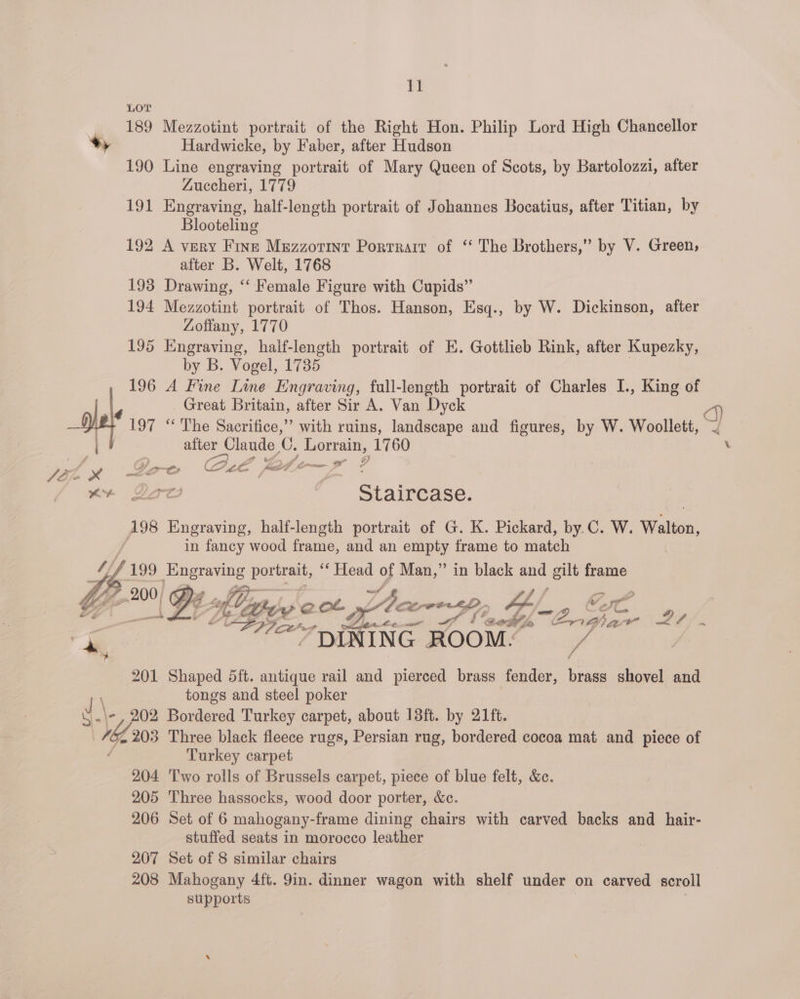 11
LOT
189 Mezzotint portrait of the Right Hon. Philip Lord High Chancellor
Hardwicke, by Faber, after Hudson
190 Line engraving portrait of Mary Queen of Scots, by Bartolozzi, after
Zuccheri, 1779
191 Engraving, half-length portrait of Johannes Bocatius, after Titian, by
Blooteling
192 A very Fine Mezzotint Portrait of “ The Brothers,” by V. Green,
after B. Welt, 1768
193 Drawing, “ Female Figure with Cupids”
194 Mezzotint portrait of Thos. Hanson, Esq., by W. Dickinson, after
Zoffany, 1770
195 Engraving, half-length portrait of E. Gottlieb Rink, after Kupezky,
by B. Vogel, 1735
196 A Fine Line Engraving, full-length portrait of Charles I., King of
Great Britain, after Sir A. Van Dyck
197 “ The Sacrifice,” with ruins, landscape and figures, by W. Woollett,
after Claude C. Lorrain, 1760
Staircase.
198 Engraving, half-length portrait of G. K. Pickard, by C. W. Walton,
in fancy wood frame, and an empty frame to match
199 Engraving portrait, “ Head of Man,” in black and gilt frame
200
DINING ROOM.
201 Shaped 5ft. antique rail and pierced brass fender, brass shovel and
tongs and steel poker
202 Bordered Turkey carpet, about 13ft. by 21ft.
203 Three black fleece rugs, Persian rug, bordered cocoa mat and piece of
Turkey carpet
204 Two rolls of Brussels carpet, piece of blue felt, &c.
205 Three hassocks, wood door porter, &c.
206 Set of 6 mahogany-frame dining chairs with carved backs and hair-
stuffed seats in morocco leather
207 Set of 8 similar chairs
208 Mahogany 4ft. 9in. dinner wagon with shelf under on carved scroll
supports